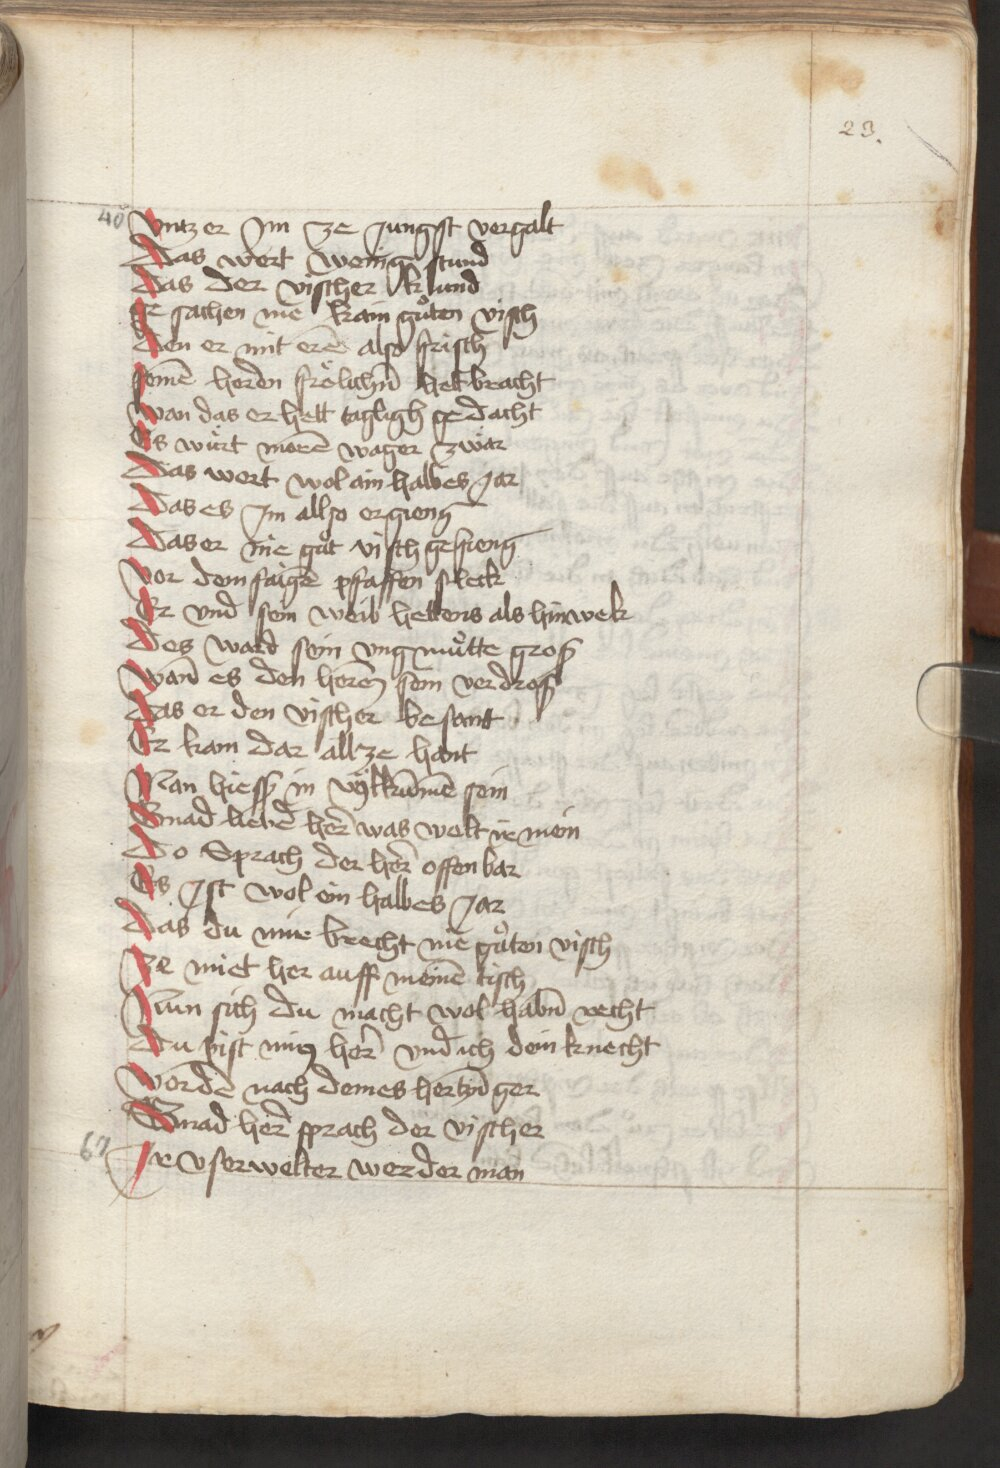 23.
40
Vntz er Im ze Jungst vergalt
Das wert wenig stund
Das der vischer k und
Er sachen nie kain gůten visch
Den er mit erē also frisch
seinē heren frölichn̄ hett bracht
wan das er hett tagligh gedacht
Es würt morē wager zwär
Das wert wol ain halbes Jar
Das es Im allso ergieng
Das er nie gůt visch gefieng
Vor dem faigē pfaffen fleck
Er vnd sein weib hettens als hinwek
Des ward sein vngmůtte groß
wan̄ es den heren sein verdroß
Das er den vischer besant
Er kam dar allze hant
Man hiess in vylkumē sein
Gnad lieber her̄ was welt ir mein
Do Sprach der her̄ offenbar
Es Jst wol ein halbes Jar
Das du mir brecht nie gůten visch
Ze miet her auff meinē tisch
Nun sich du macht wol habn̄ recht
Du pist min her̄ vnd ich dein knecht
worden nach deines hertzen ger
Gnad her̄ sprach der vischer
67
Ir vserwelter werder man